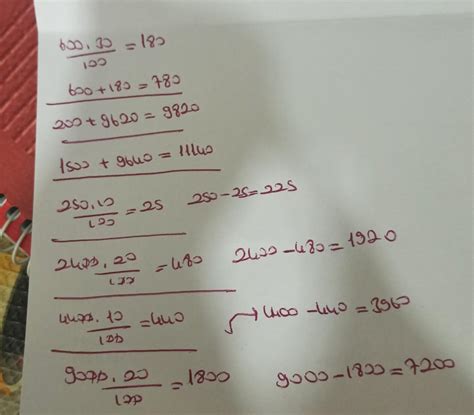 600.30/100 = 180
600 + 180 = 780
200 + 9620 = 9820
1500 + 9640 = 11140
250.10/100 = 25 250 - 25 = 225
2400.20/100 = 480 2400 - 480 = 1920
4400.10/100 = 440 → 4400 - 440 = 3960
9000.20/100 = 1800 9000 - 1800 = 7200